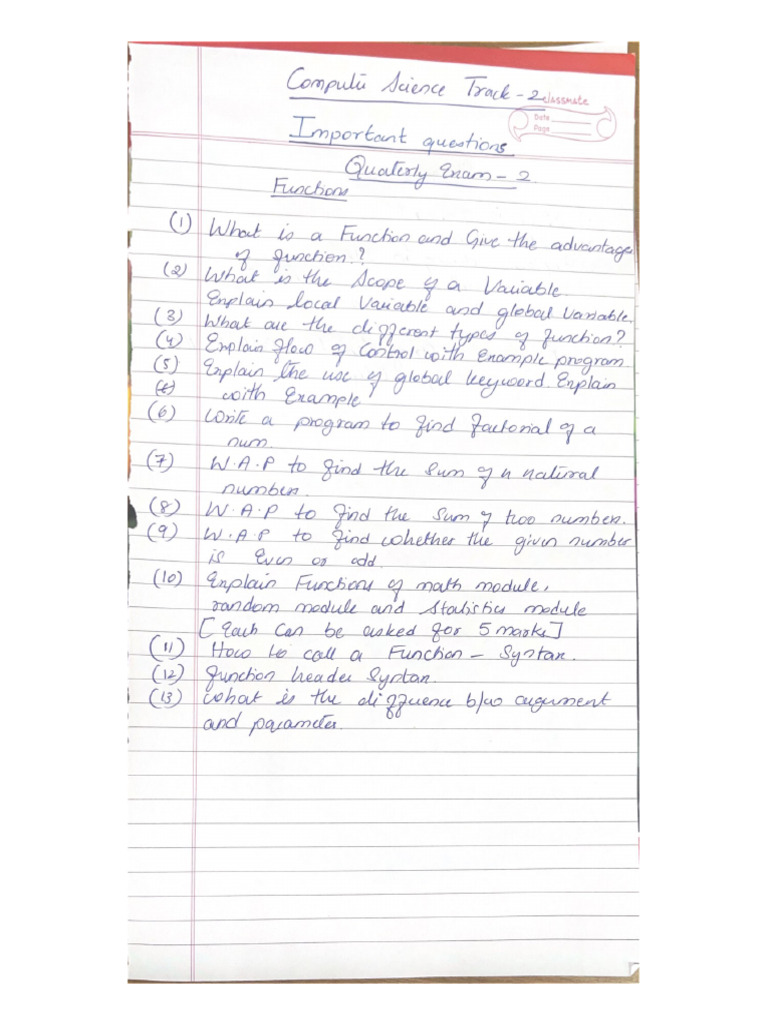 Computer Science Track - 2
classmate
Date
Page
Important questions
Quaterly Exam - 2
Functions
(1) What is a Function and Give the advantages
of function.?
(2) What is the Scope of a Variable.
Explain local Variable and global Variable.
(3) What are the different types of function?
(4) Explain flow of Control with Example program
(5) Explain the use of global keyword. Explain
with Example
(6) Write a program to find factorial of a
num.
(7) W.A.P to find the sum of n natural
number.
(8) W.A.P to find the sum of two number.
(9) W.A.P to find whether the given number
is Even or odd.
(10) Explain Functions of math module,
random module and Statistics module
[Each can be asked for 5 marks]
(11) How to call a Function - Syntax.
(12) function header Syntax.
(13) What is the difference b/w argument
and parameter.